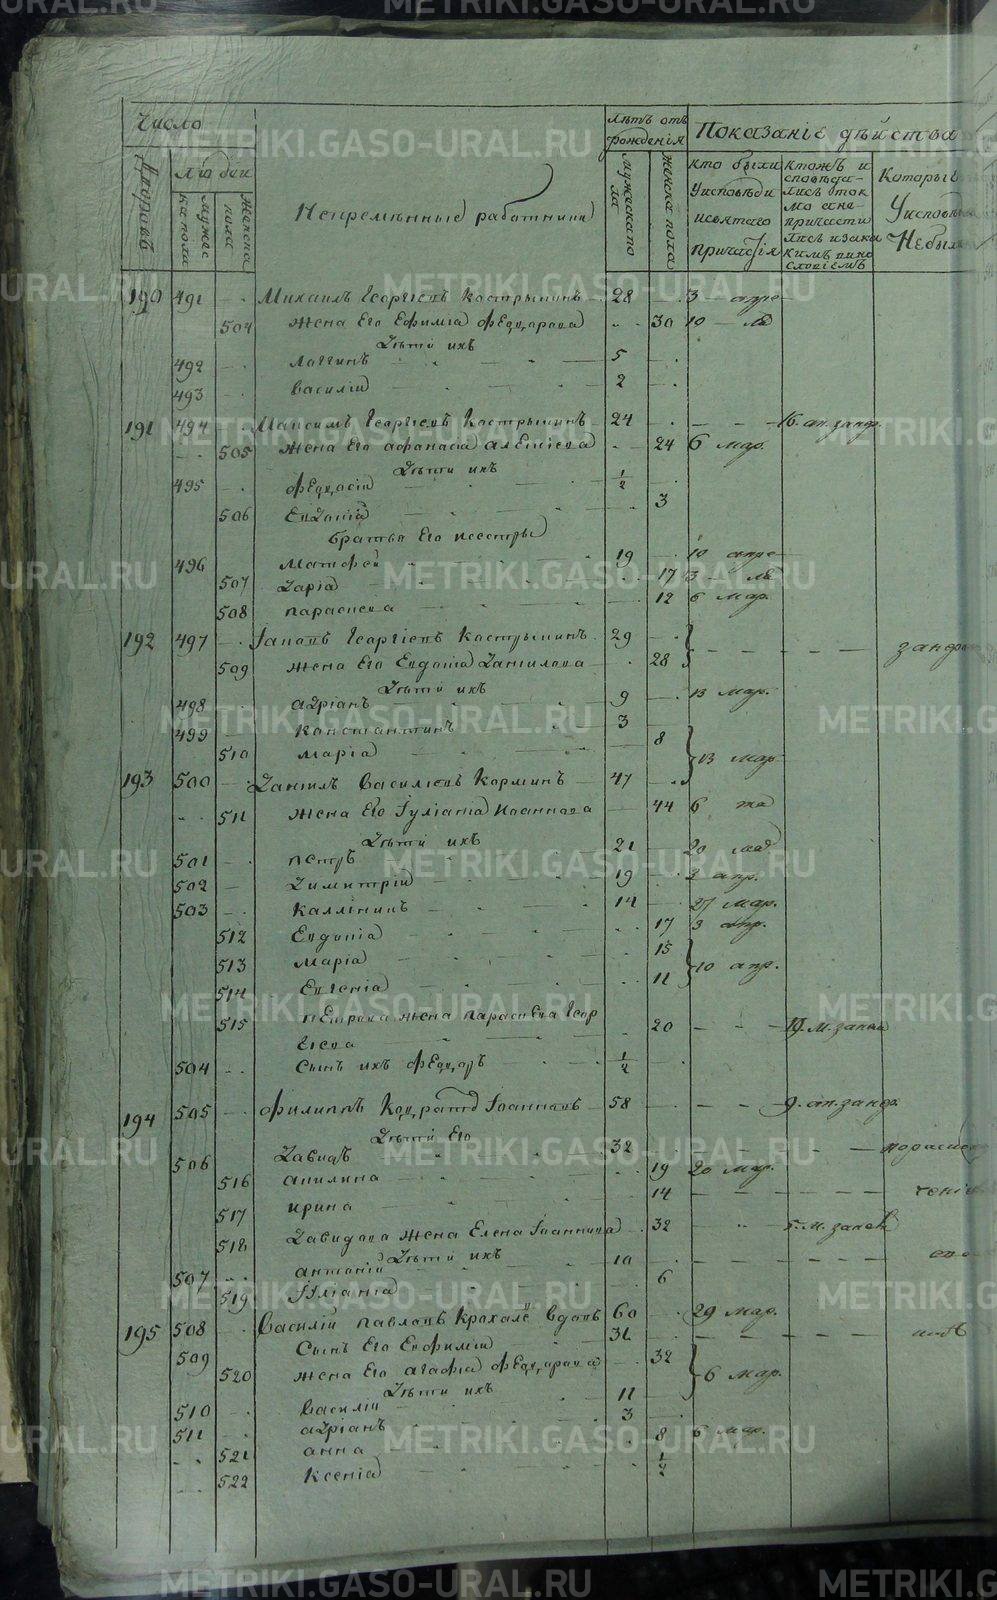 METRIKI.GASO-URAL.RU
Число
лѣтъ отъ рожденія
Показаніе дѣйства
дворовъ
людей
мужеска пола
женска пола
Непремѣнные работники
мужеска пола
женска пола
кто были у исповѣди и святаго причастія
ктожъ исповѣдались токмо а не причастились и за какимъ винословіемъ
Которые у исповѣди не были
190 491 Михаилъ Георгіевъ Кострыкинъ 28 3 апре
504 жена его Ефимія Феодорова 30 10 ля
дѣти ихъ
492 Логгинъ 5
493 Василій 2
191 494 Максимъ Георгіевъ Кострыкинъ 24 16 ап. занер.
505 жена его Афанасіа Алеѯіева 24 6 мар.
дѣти ихъ
495 Феодосій 1/2
506 Евдокіа 3
братья его и сестры
496 Матфей 19 10 апре
507 Даріа 17 3 ля
508 Параскева 12 6 мар.
192 497 Іаковъ Георгіевъ Кострыкинъ 29
509 жена его Евдокіа Данилова 28
дѣти ихъ
498 Адріанъ 9 13 мар.
499 Константинъ 3
510 Маріа 8 13 мар
193 500 Даніилъ Василіевъ Корминъ 47
511 жена его Іуліаніа Иоаннова 44 6 та
дѣти ихъ
501 Петръ 21 20 мар
502 Димитрій 19 2 апр.
503 Каллиникъ 14 27 мар.
512 Евдокіа 17 3 апр.
513 Маріа 15
514 Евгеніа 11 10 апр.
515 Петрова жена Параскева Геор 20 19 м.
гіева
504 Сынъ ихъ Феодоръ 1/2
194 505 Филиппъ Кондратіевъ Іоанновъ 58 9 ап. занер
дѣти его
506 Давидъ 32
516 Акилина 19 20 мар.
517 Ирина 14
518 Давидова жена Елена Іоаннова 32 5 м.
дѣти ихъ
507 Антоній 10
519 Іуліаніа 6
195 508 Василій Павловъ Крохалевъ вдовъ 60 29 мар.
509 Сынъ его Евфимій 36
520 жена его Агафіа Феодорова 32 6 мар.
дѣти ихъ
510 Василій 11
511 Адріанъ 3
521 Анна 8 6 мар.
522 Ксеніа